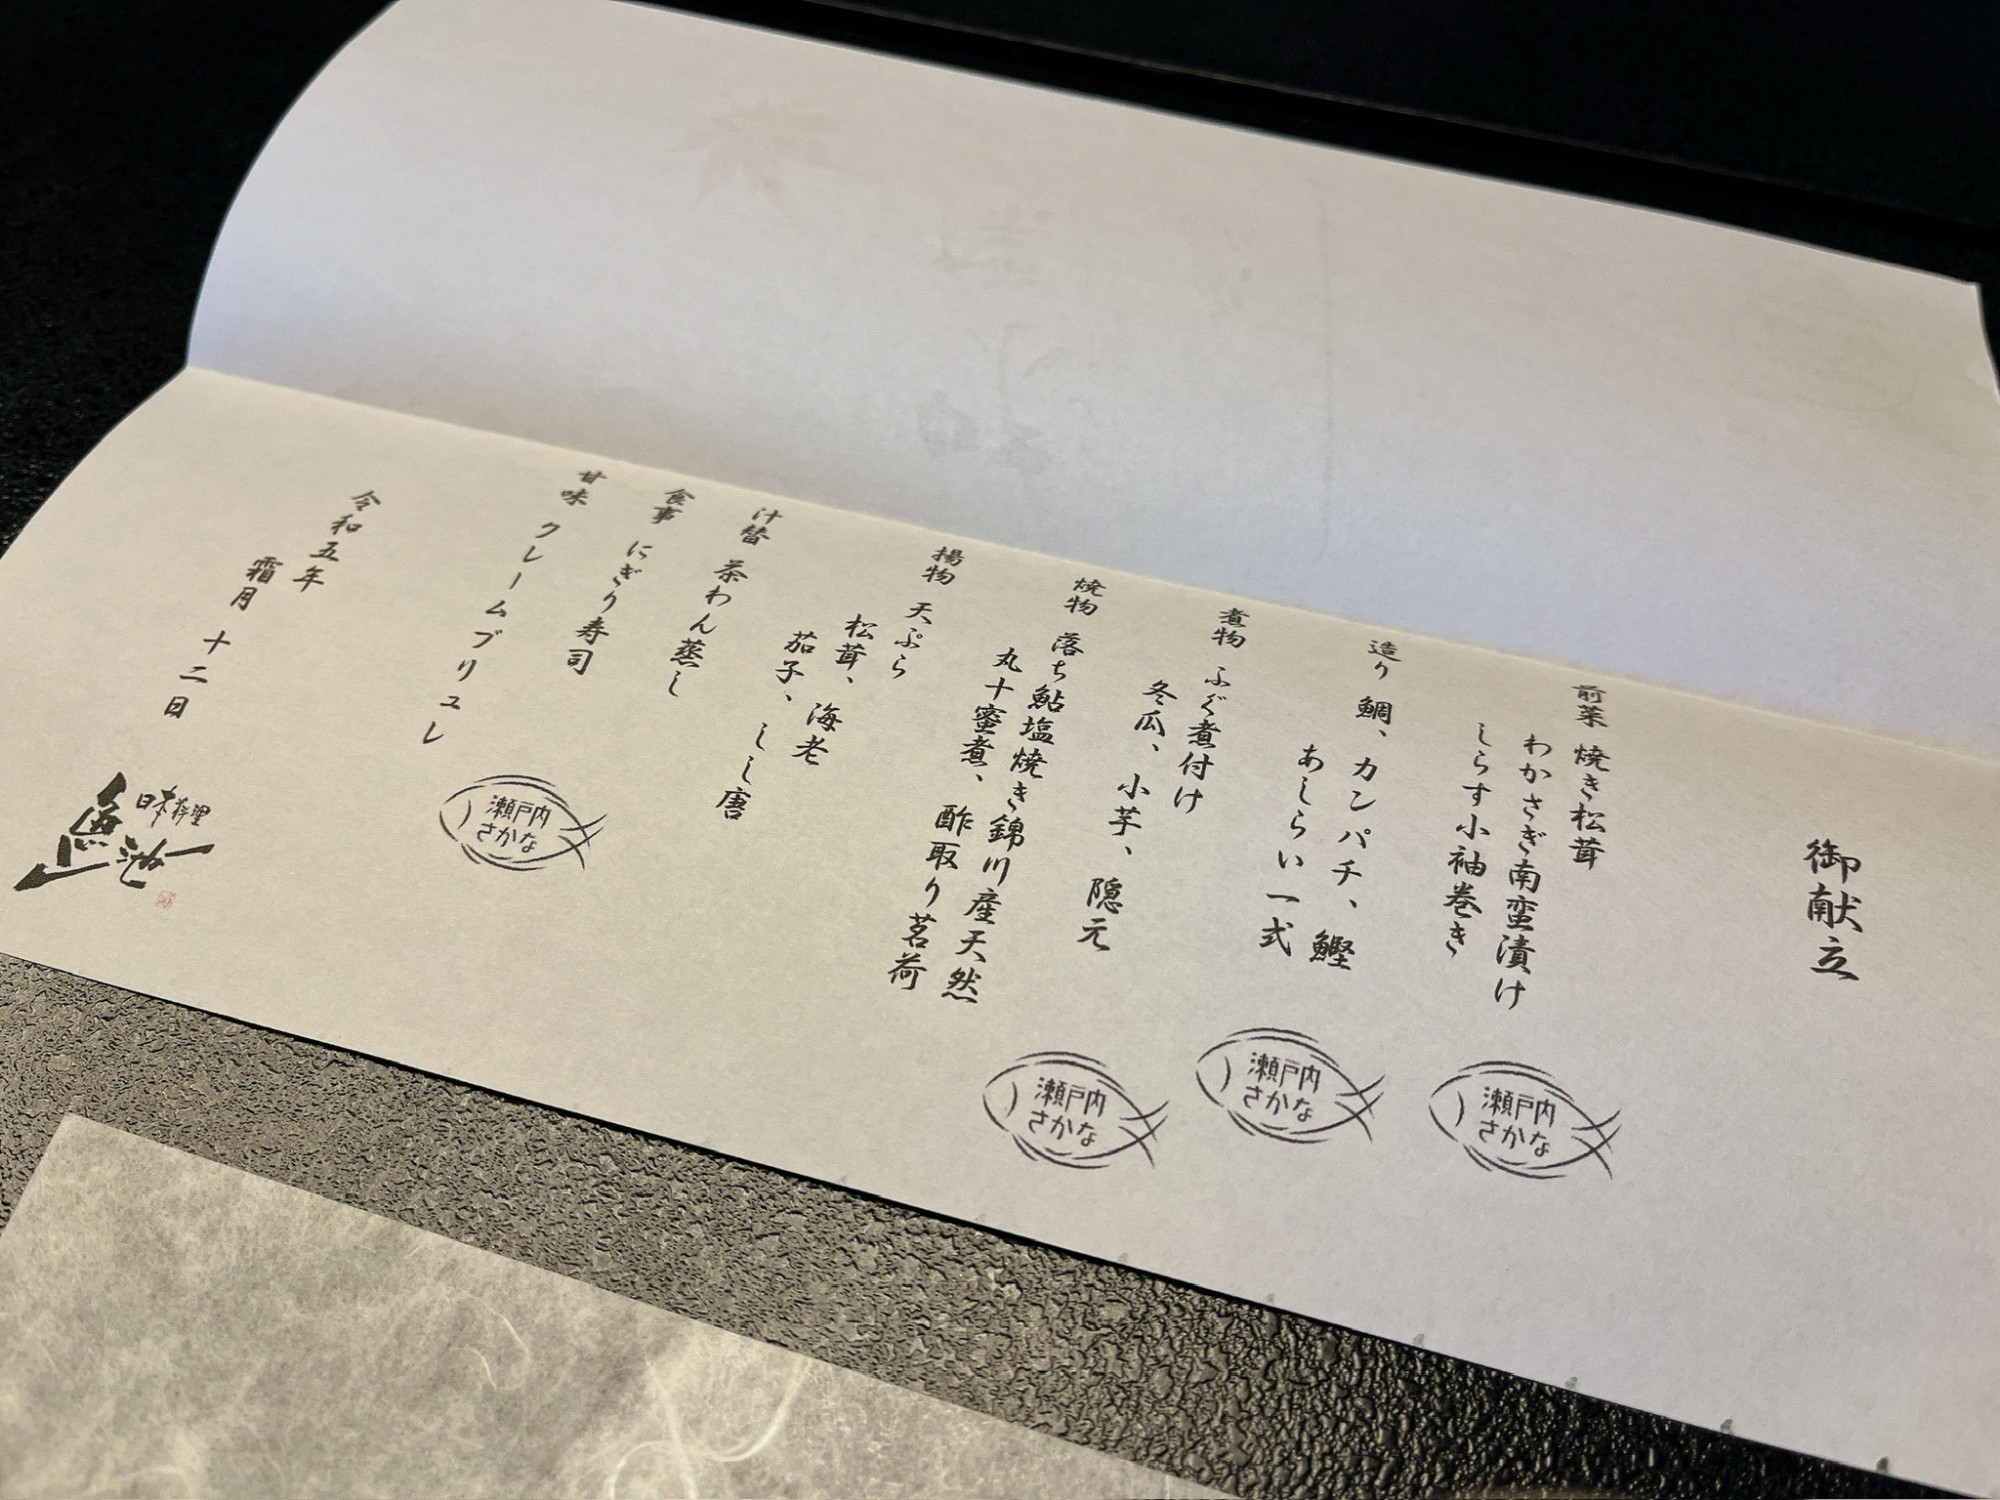 御献立
前菜 焼き松茸
わかさぎ南蛮漬け
しらす小袖巻き
造り 鯛、カンパチ、鰹
あしらい一式
煮物 ふぐ煮付け
冬瓜、小芋、隠元
焼物 落ち鮎塩焼き錦川産天然
丸十蜜煮、酢取り茗荷
揚物 天ぷら
松茸、海老
茄子、しし唐
汁替 茶わん蒸し
食事 にぎり寿司
甘味 クレームブリュレ
令和五年
霜月 十二日
瀬戸内
さかな
瀬戸内
さかな
瀬戸内
さかな
瀬戸内
さかな
日本料理